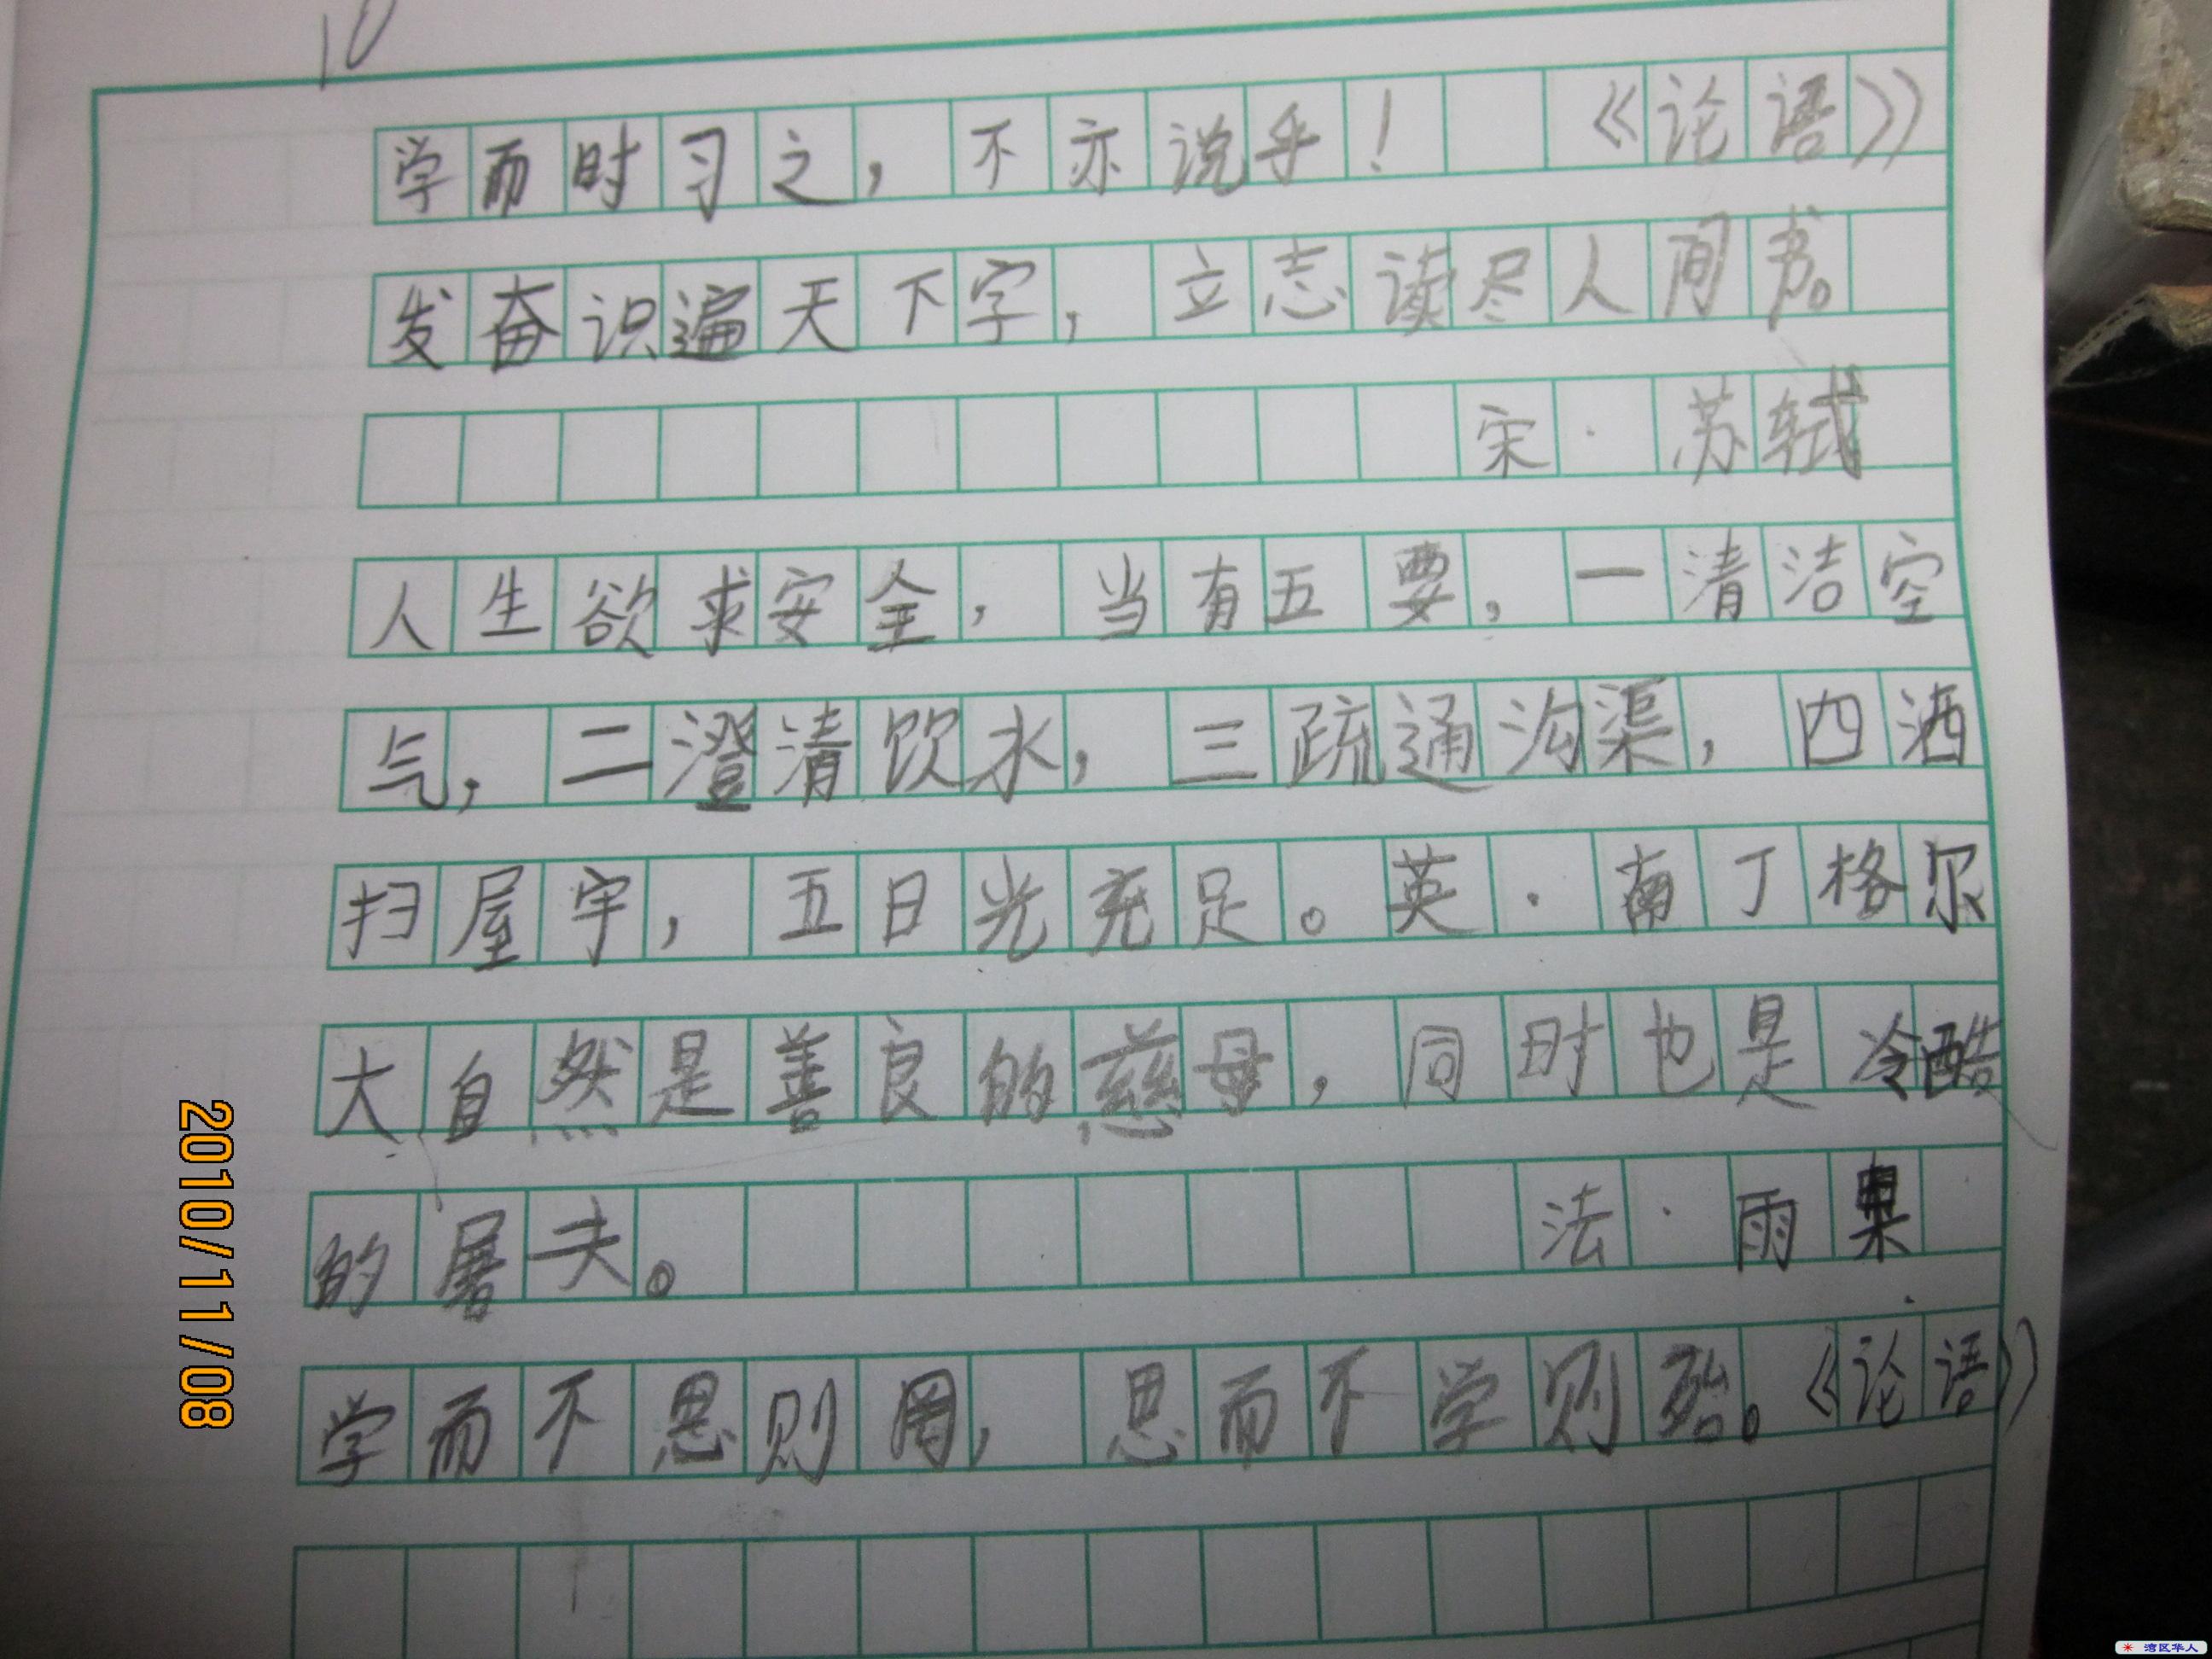 10
学而时习之，不亦说乎！《论语》
发奋识遍天下字，立志读尽人间书。
宋·苏轼
人生欲求安全，当有五要，一清洁空
气，二澄清饮水，三疏通沟渠，四洒
扫屋宇，五日光充足。英·南丁格尔
大自然是善良的慈母，同时也是冷酷
的屠夫。 法·雨果
学而不思则罔，思而不学则殆。《论语》
2010/11/08
湾区华人